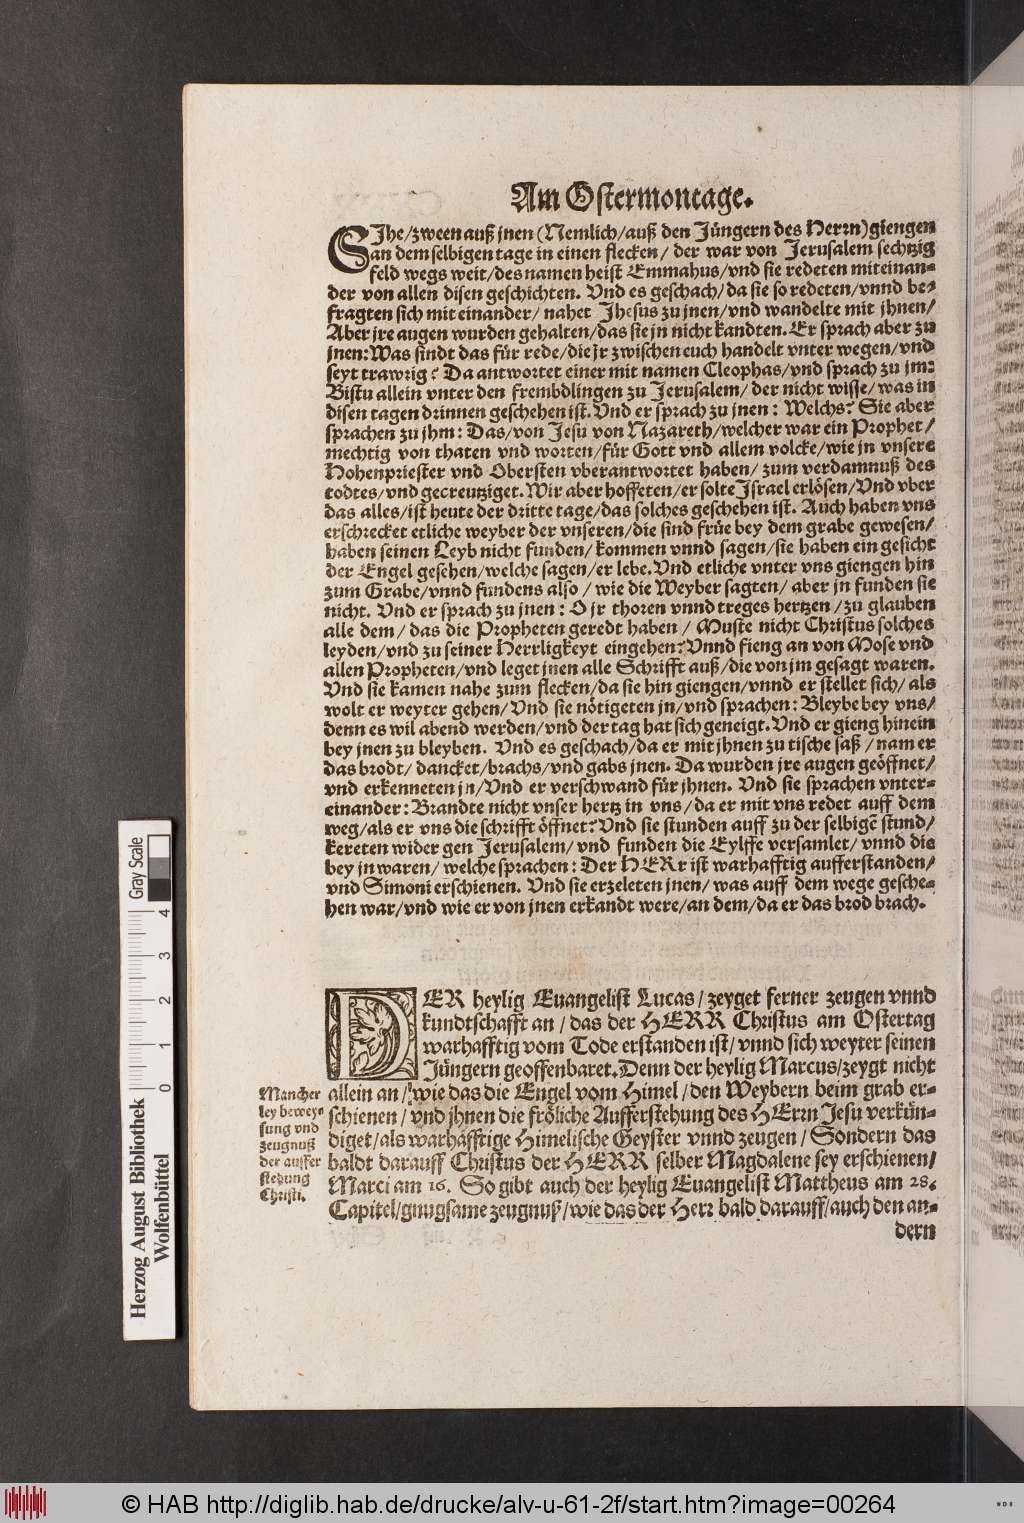 Am Ostermontage.
SJhe/zween auß jnen (Nemlich/auß den Jüngern des Herrn) giengen
an dem selbigen tage in einen flecken/ der war von Jerusalem sechtzig
feld wegs weit/des namen heist Emmahus/vnd sie redeten miteinan-
der von allen disen geschichten. Vnd es geschach/da sie so redeten/vnnd be-
fragten sich mit einander/ nahet Jhesus zu jnen/vnd wandelte mit jhnen/
Aber jre augen wurden gehalten/das sie jn nicht kandten. Er sprach aber zu
jnen: Was sindt das für rede/die jr zwischen euch handelt vnter wegen/vnd
seyt trawrig? Da antwortet einer mit namen Cleophas/vnd sprach zu jm:
Bistu allein vnter den frembdlingen zu Jerusalem/ der nicht wisse/ was in
disen tagen drinnen geschehen ist. Vnd er sprach zu jnen: Welchs? Sie aber
sprachen zu jhm: Das/von Jesu von Nazareth/welcher war ein Prophet/
mechtig von thaten vnd worten/für Gott vnd allem volcke/wie jn vnsere
Hohenpriester vnd Obersten vberantwortet haben/ zum verdamnuß des
todtes/vnd gecreutziget. Wir aber hoffeten/er solte Jsrael erlösen/Vnd vber
das alles/ist heute der dritte tage/das solches geschehen ist. Auch haben vns
erschrecket etliche weyber der vnseren/die sind früe bey dem grabe gewesen/
haben seinen Leyb nicht funden/ kommen vnnd sagen/sie haben ein gesicht
der Engel gesehen/welche sagen/er lebe. Vnd etliche vnter vns giengen hin
zum Grabe/vnnd fundens also/ wie die Weyber sagten/ aber jn funden sie
nicht. Vnd er sprach zu jnen: O jr thoren vnnd treges hertzen/zu glauben
alle dem/ das die Propheten geredt haben/ Muste nicht Christus solches
leyden/vnd zu seiner Herrligkeyt eingehen? Vnnd fieng an von Mose vnd
allen Propheten/vnd leget jnen alle Schrifft auß/die von jm gesagt waren.
Vnd sie kamen nahe zum flecken/da sie hin giengen/vnnd er stellet sich/ als
wolt er weyter gehen/Vnd sie nötigeten jn/vnd sprachen: Bleybe bey vns/
denn es wil abend werden/vnd der tag hat sich geneigt. Vnd er gieng hinein
bey jnen zu bleyben. Vnd es geschach/da er mit jhnen zu tische saß/nam er
das brodt/ dancket/brachs/vnd gabs jnen. Da wurden jre augen geöffnet/
vnd erkenneten jn/Vnd er verschwand für jhnen. Vnd sie sprachen vnter-
einander: Brandte nicht vnser hertz in vns/da er mit vns redet auff dem
weg/als er vns die schrifft öffnet? Vnd sie stunden auff zu der selbigē stund/
kereten wider gen Jerusalem/vnd funden die Eylffe versamlet/vnnd die
bey jn waren/ welche sprachen: Der HERr ist warhafftig aufferstanden/
vnd Simoni erschienen. Vnd sie erzeleten jnen/ was auff dem wege gesche-
hen war/vnd wie er von jnen erkandt were/an dem/da er das brod brach.
DER heylig Euangelist Lucas/zeyget ferner zeugen vnnd
kundtschafft an/das der HERR Christus am Ostertag
warhafftig vom Tode erstanden ist/ vnnd sich weyter seinen
Jüngern geoffenbaret. Denn der heylig Marcus/zeygt nicht
allein an/wie das die Engel vom Himel/den Weybern beim grab er-
schienen/vnd jhnen die fröliche Aufferstehung des HErrn Jesu verkün-
diget/als warhafftige Himelische Geyster vnnd zeugen/Sondern das
baldt darauff Christus der HERR selber Magdalene sey erschienen/
Marci am 16. So gibt auch der heylig Euangelist Mattheus am 28.
Capitel/gnugsame zeugnuß/wie das der Herr bald darauff/auch den an-
dern
Mancher
ley bewey-
sung vnd
zeugnuß
der auffer
stehung
Christi.
Gray Scale
4
3
2
1
0
Herzog August Bibliothek
Wolfenbüttel
© HAB http://diglib.hab.de/drucke/alv-u-61-2f/start.htm?image=00264
WDB